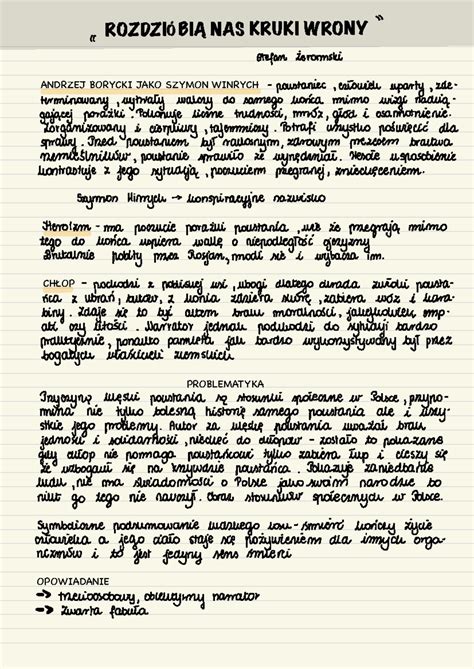 „ ROZDZIÓBIĄ NAS KRUKI WRONY ”
Stefan Żeromski
ANDRZEJ BORYCKI JAKO SZYMON WINRYCH - powstaniec, człowiek uparty, zde-
terminowany, wytrwały walczy do samego końca mimo wizji nadcią-
gającej porażki. Pokonuje liczne trudności, mróz, głód i osamotnienie.
Zorganizowany i cierpliwy, tajemniczy. Potrafi wszystko poświęcić dla
sprawy. Przed powstaniem był radosnym, zdrowym prezesem bractwa
niemeśmników, powstanie sprawiło że wynędzniał. Herdie usposobienie
kontrastuje z jego sytuacją, poczuciem przegranej, zniechęceniem.
Szymon Winrych → konspiracyjne nazwisko
Heroizm - ma poczucie porażki powstania, wie że przegrają mimo
tego do końca wspiera walkę o niepodległość ojczyzny
Brutalnie pobity przez Rosjan, modli się i wybacza im.
CHŁOP - pochodzi z pobliskiej wsi, ubogi dlatego okrada zwłoki powsta-
ńca z ubrań, butów, z konia zdziera skórę, zabiera wóz i kara-
biny. Zdaje się to być aktem braku moralności, jakiejkolwiek emp-
atii czy litości. Narrator jednak podchodzi do sytuacji bardzo
praktycznie, ponadto pamięta jak bardzo wykorzystywany był przez
bogatych właścicieli ziemskich.
PROBLEMATYKA
Przyczyną klęski powstania są stosunki społeczne w Polsce, przypo-
mina nie tylko bolesną historię samego powstania ale i wszy-
stkie jego problemy. Autor za klęskę powstania uważał brak
jedności i solidarności, niechęć do chłopów - zostało to pokazane
gdy chłop nie pomaga powstańcowi tylko zabiera łup i cieszy się
że wzbogacił się na krzywdzie powstańca. Pokazuje zaniedbania
ludu, nie ma świadomości o Polsce jako swoim narodzie bo
nikt go tego nie nauczył. Obraz stosunków społecznych w Polsce.
Symboliczne podsumowanie ludzkiego losu - śmierć kończy życie
człowieka a jego ciało staje się pożywieniem dla innych orga-
nizmów i to jest jedyny sens śmierci
OPOWIADANIE
→ trzecioosobowy, obiektywny narrator
→ zwarta fabuła